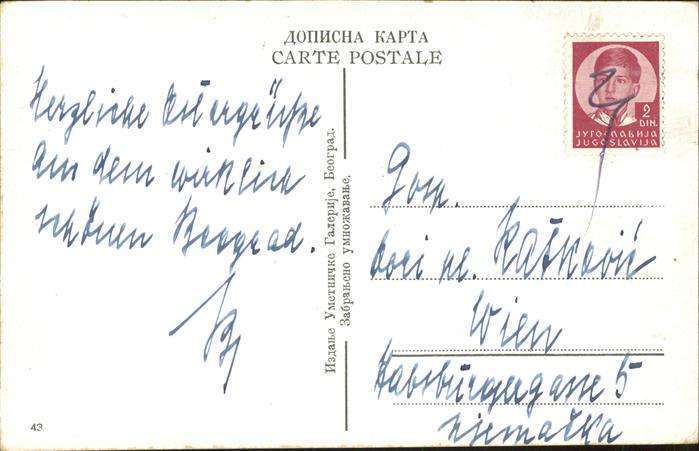 ДОПИСНА КАРТА
CARTE POSTALE
Herzliche Ostergrüße
aus dem wirklich
schönen Beograd.
2
DIN.
ЈУГОСЛАВИЈА
JUGOSLAVIJA
Издање Уметничке Галерије, Београд.
Забрањено умножавање.
Gosp.
pl. Ratković
Wien
Habsburgergasse 5
Njemačka
43